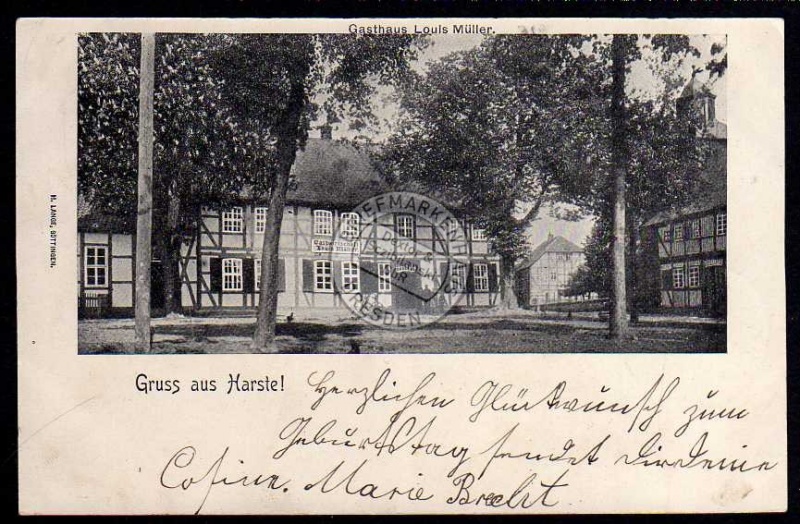 Gasthaus Louis Müller.
Gastwirtschaft
Louis Müller
BRIEFMARKEN
DRESDEN
H. LANGE, GÖTTINGEN.
Gruss aus Harste!
Herzlichen Glückwunsch zum
Geburtstag sendet Dir Deine
Cosine. Marie Brecht